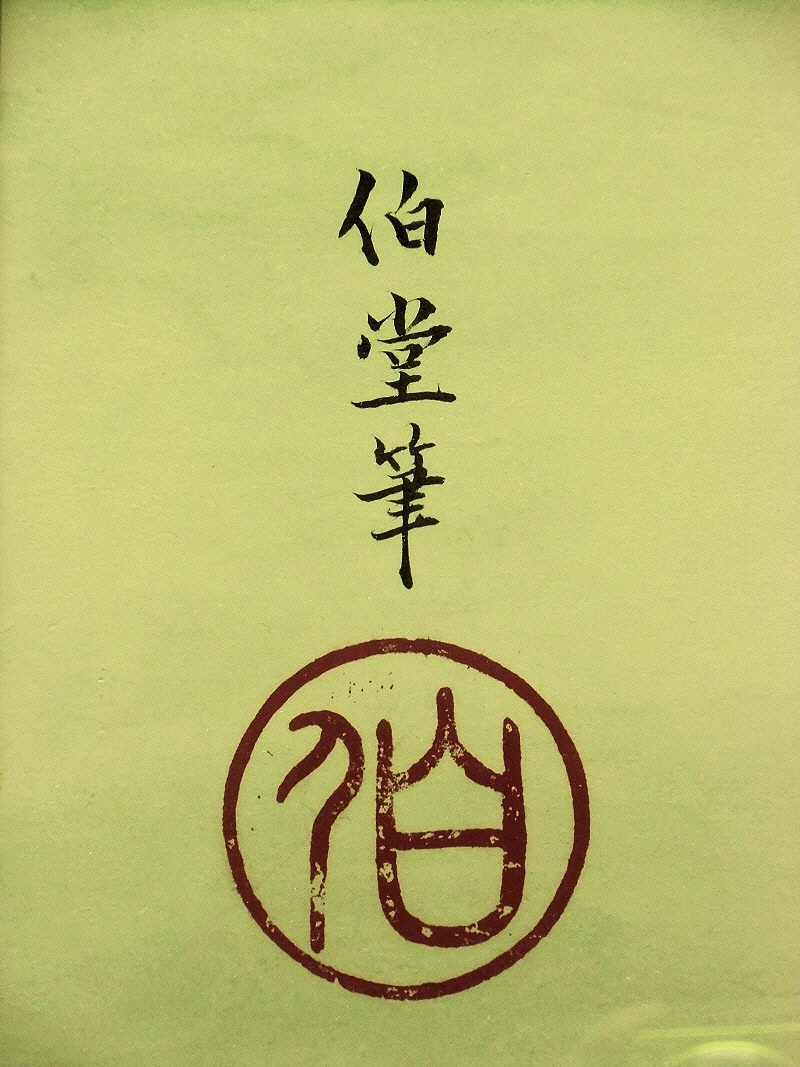 伯堂筆
伯